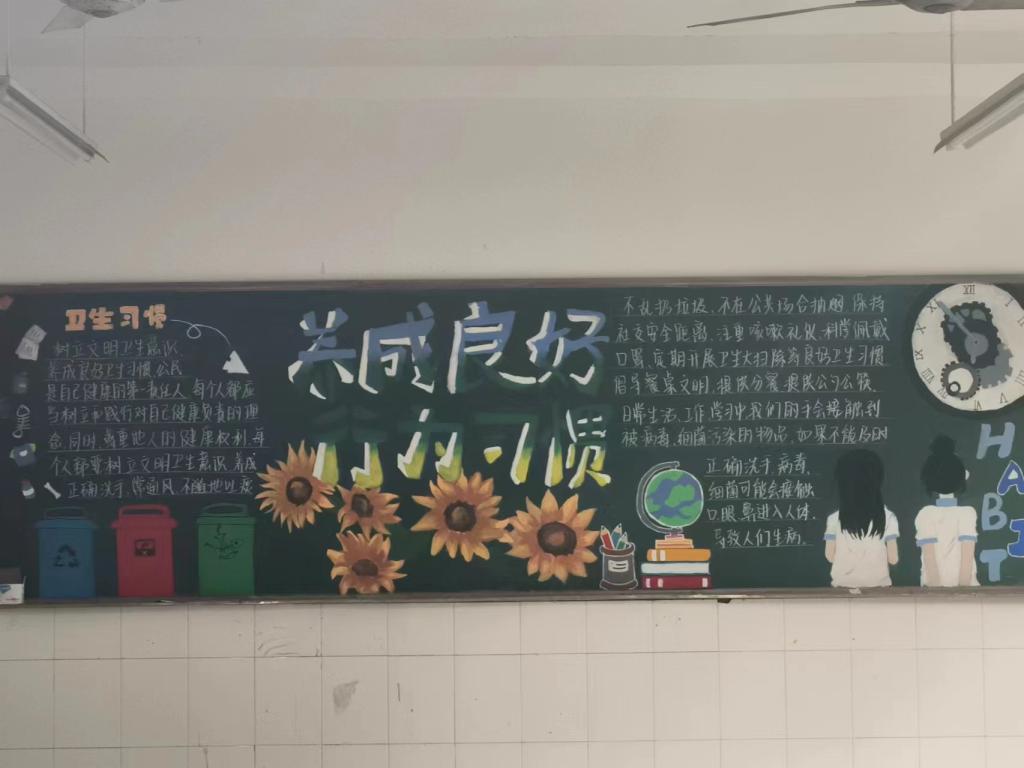 卫生习惯
树立文明卫生意识,
养成良好卫生习惯,公民
是自己健康的第一责任人,每个人都应
当树立和践行对自己健康负责的理
念,同时,尊重他人的健康权利,每
个人都要树立文明卫生意识,养成
正确洗手,常通风,不随地吐痰
养成良好
行为习惯
不乱扔垃圾,不在公共场合抽烟,保持
社交安全距离,注重咳嗽礼仪,科学佩戴
口罩,定期开展卫生大扫除等良好卫生习惯
倡导餐桌文明,提供分餐,提供公勺公筷.
日常生活、工作、学习中我们的手会接触到
被病毒、细菌污染的物品,如果不能及时
正确洗手,病毒、
细菌可能会接触
口眼鼻进入人体.
导致人们生病.
HABIT